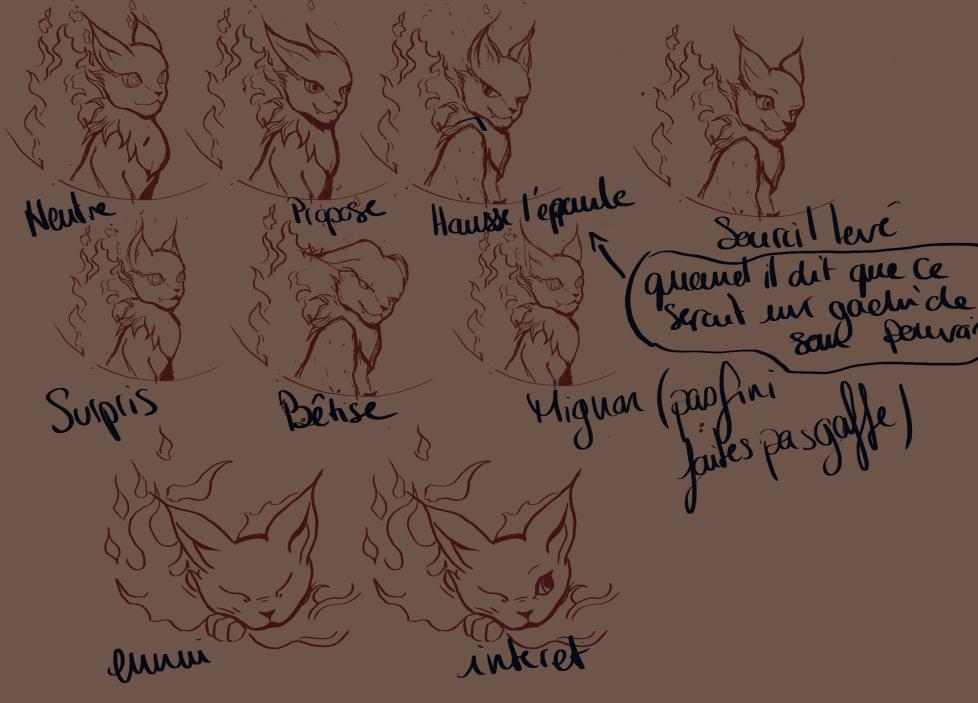 Neutre
Propose
Hausse l'épaule
Sourcil levé
quand il dit que ce
serait un gachi de
son pouvoir
Surpris
Bêtise
Mignon (pas fini
faites pas gaffe)
ennui
interet